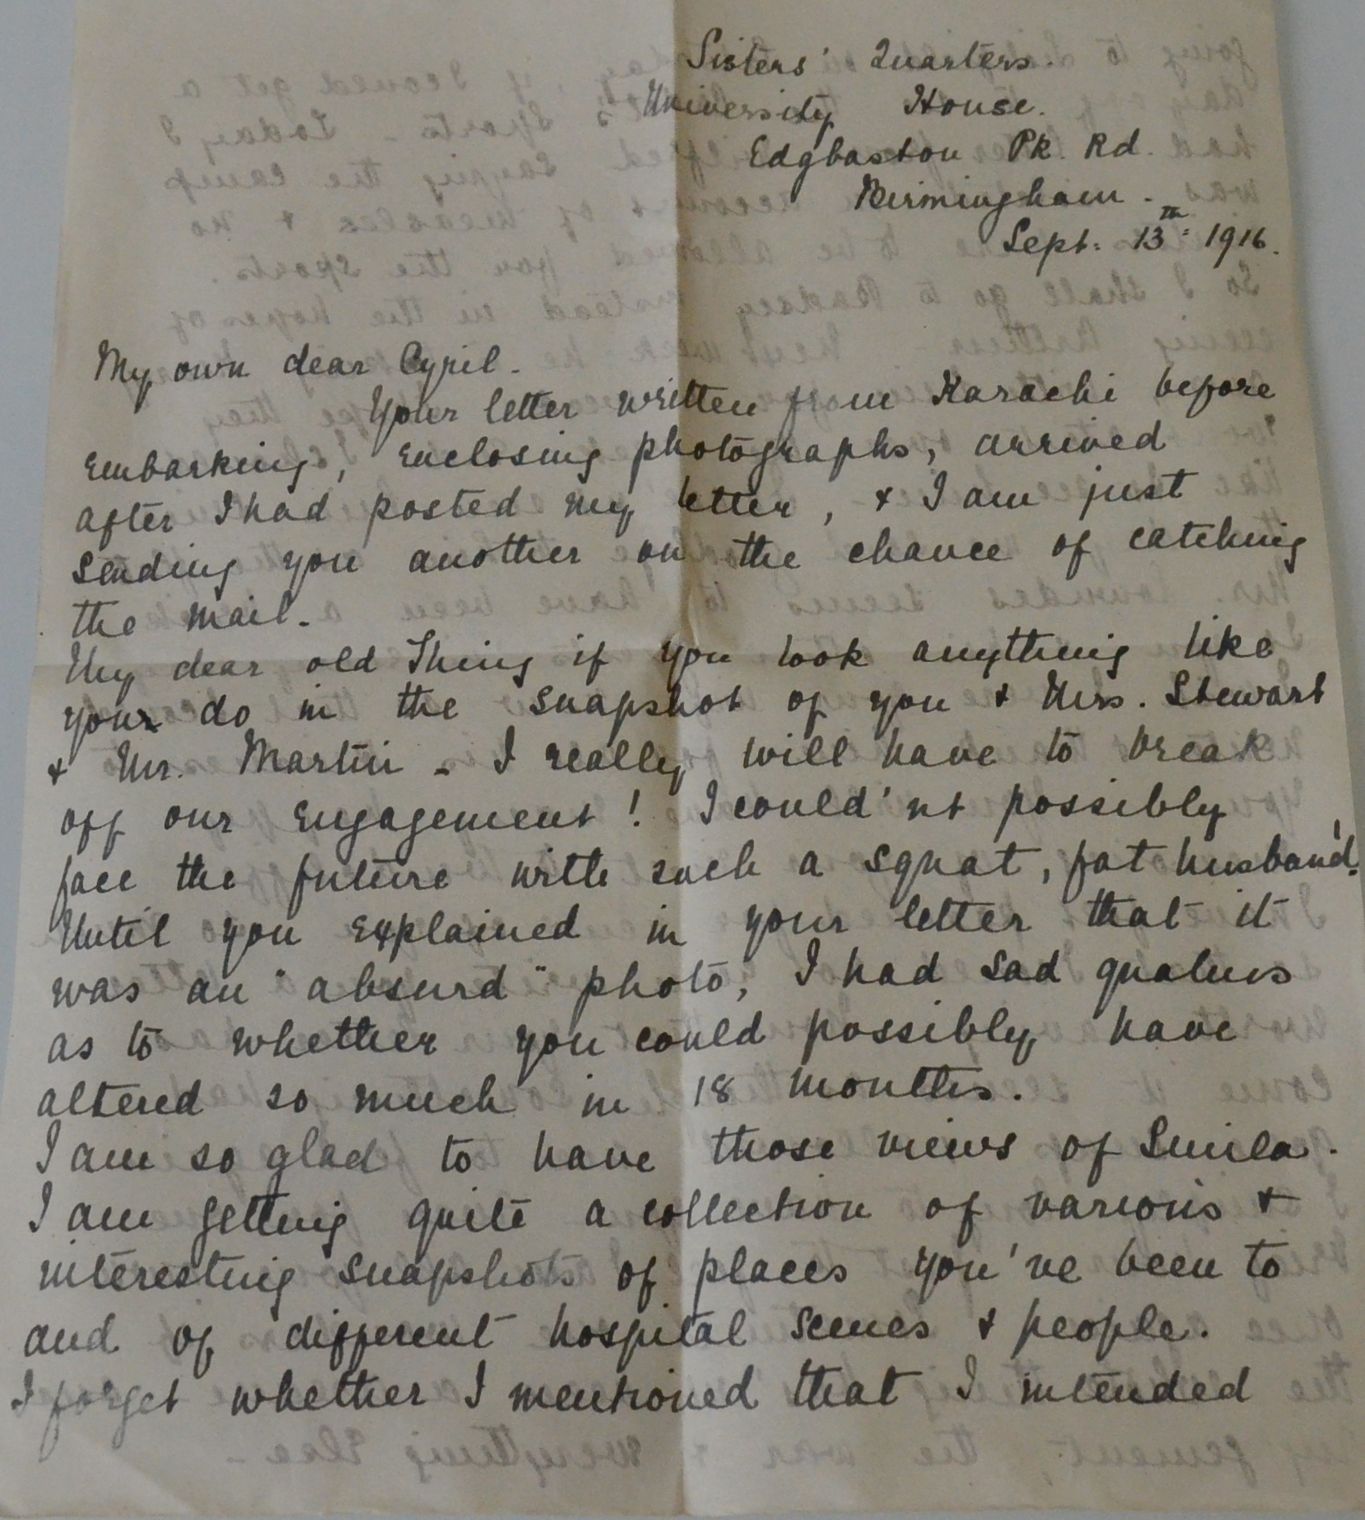 Sisters' Quarters.
University House.
Edgbaston Pk. Rd.
Birmingham.
Sept: 13th: 1916.
My own dear Cyril.
Your letter written from Karachi before
embarking, enclosing photographs, arrived
after I had posted my letter, & I am just
sending you another on the chance of catching
the mail.
My dear old Thing if you look anything like
your do in the snapshot of you & Mrs. Stewart
& Mr. Martin - I really will have to break
off our engagement! I could'nt possibly
face the future with such a squat, fat husband!
Until you explained in your letter that it
was an "absurd" photo, I had sad qualms
as to whether you could possibly have
altered so much in 18 months.
I am so glad to have those views of Simla.
I am getting quite a collection of various &
interesting snapshots of places you've been to
and of different hospital scenes & people.
I forget whether I mentioned that I intended